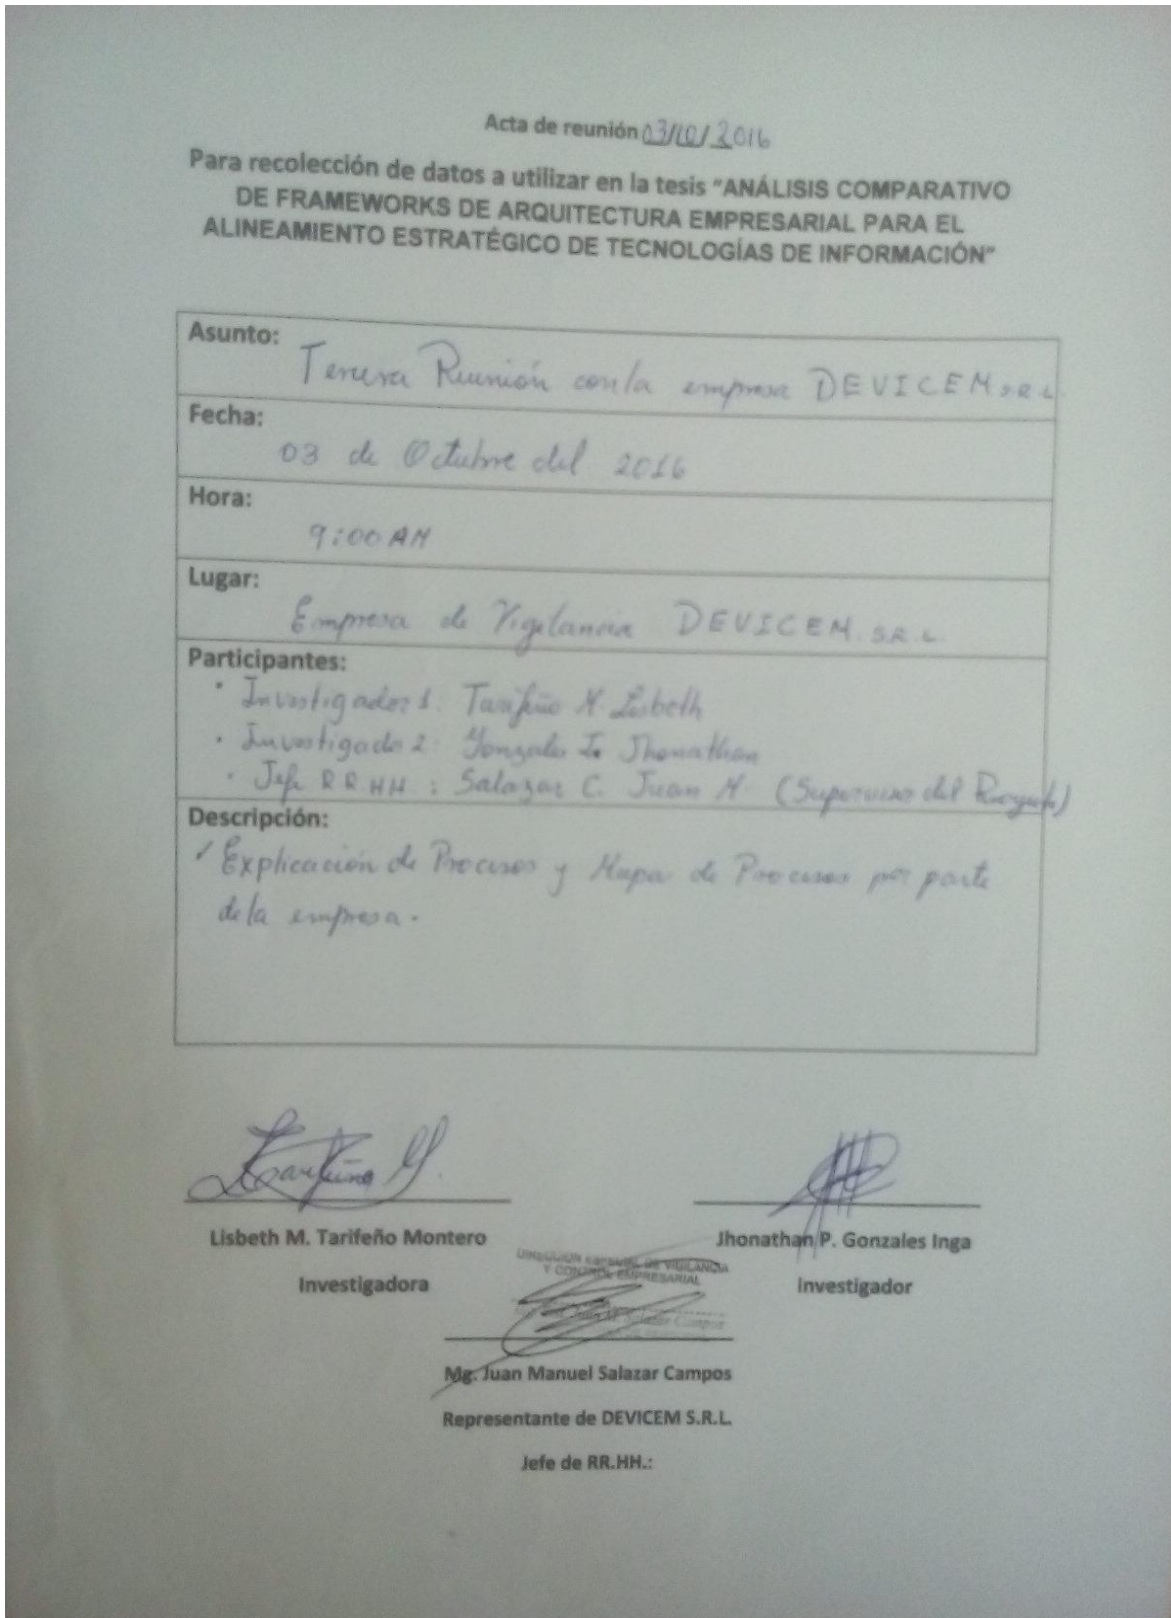 Acta de reunión 03/10/2016
Para recolección de datos a utilizar en la tesis "ANÁLISIS COMPARATIVO
DE FRAMEWORKS DE ARQUITECTURA EMPRESARIAL PARA EL
ALINEAMIENTO ESTRATÉGICO DE TECNOLOGÍAS DE INFORMACIÓN"
Asunto:
Tercera Reunión con la empresa DEVICEM S.R.L.
Fecha:
03 de Octubre del 2016
Hora:
9:00 AM
Lugar:
Empresa de Vigilancia DEVICEM S.R.L.
Participantes:
• Investigador 1: Tarifeño M. Lisbeth
• Investigado 2: Gonzales I. Jhonathan
• Jefe RR.HH : Salazar C. Juan M. (Supervisor del Proyecto)
Descripción:
✓ Explicación de Procesos y Mapa de Procesos por parte
de la empresa.
Tarifeño M.
Lisbeth M. Tarifeño Montero
Jhonathan P. Gonzales Inga
Investigadora
Investigador
DIRECCION ESPECIAL DE VIGILANCIA
Y CONTROL EMPRESARIAL
Juan M. Salazar Campos
Mg. Juan Manuel Salazar Campos
Representante de DEVICEM S.R.L.
Jefe de RR.HH.: